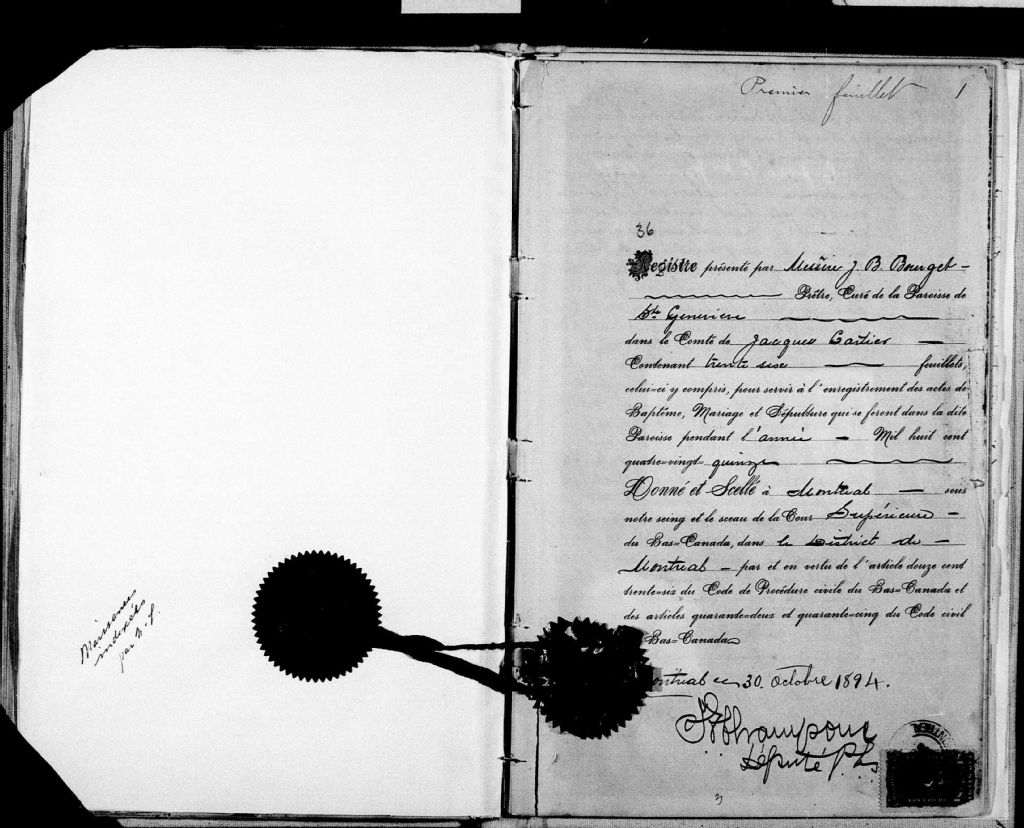 Naissances
indexées
par
Premier feuillet 1
36
Registre présenté par Messire J. B. Bourget
Prêtre, Curé de la Paroisse de
Ste Genevieve
dans le Comté de Jacques Cartier
Contenant trente six feuillets,
celui-ci y compris, pour servir à l'enregistrement des actes de
Baptême, Mariage et Sépulture qui se feront dans la dite
Paroisse pendant l'année Mil huit cent
quatre-vingt-quinze
Donné et Scellé à Montreal sous
notre seing et le sceau de la Cour Supérieure
du Bas-Canada, dans le District de
Montreal par et en vertu de l'article douze cent
trente-six du Code de Procédure civile du Bas-Canada et
des articles quarante-deux et quarante-cinq du Code civil
Bas-Canada
ontreal ce 30. Octobre 1894.
Champoux
Député P.
3